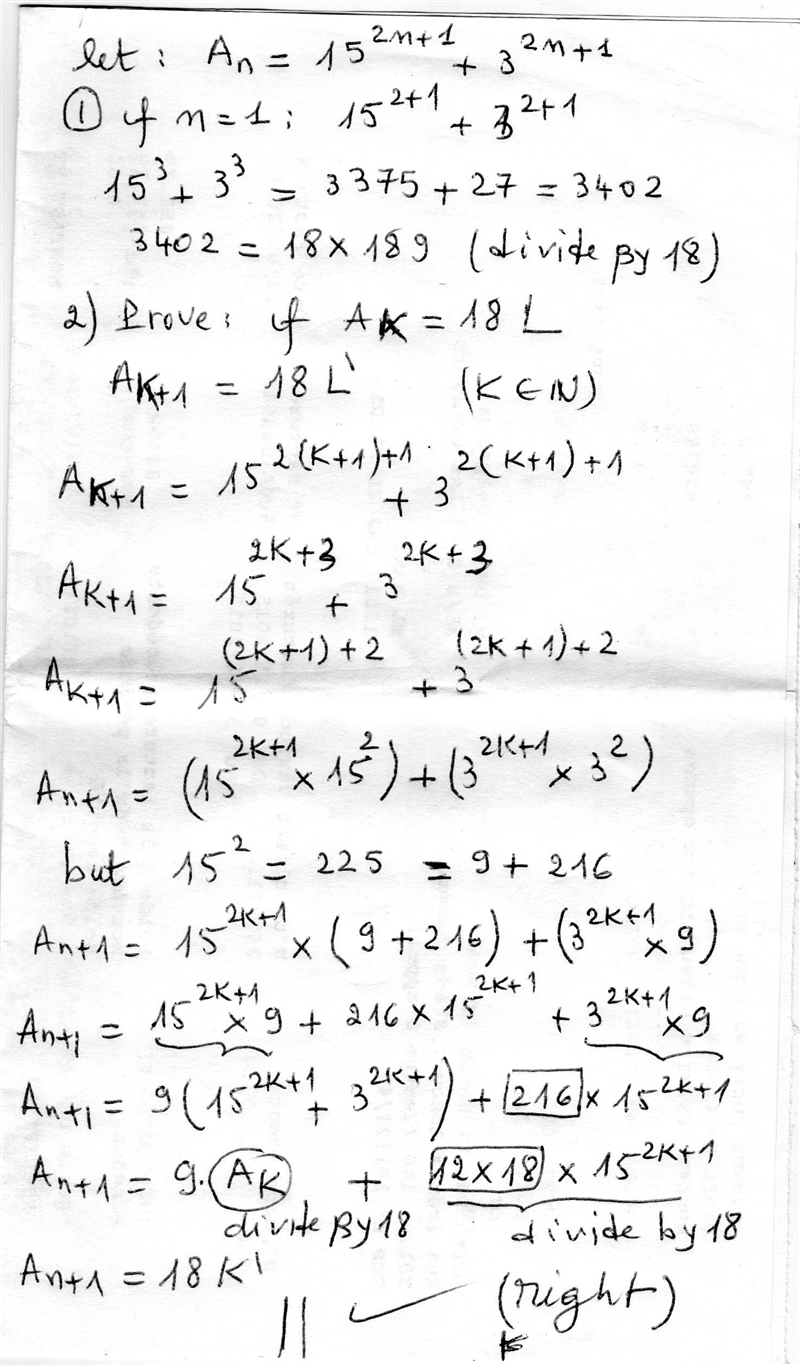 let: Aₙ = 15²ⁿ⁺¹ + 3²ⁿ⁺¹
① if n=1: 15²⁺¹ + 3²⁺¹
15³ + 3³ = 3375 + 27 = 3402
3402 = 18 × 189 (divide By 18)
2) Prove: if A_K = 18 L
A_{K+1} = 18 L' (K ∈ ℕ)
A_{K+1} = 15^{2(K+1)+1} + 3^{2(K+1)+1}
A_{K+1} = 15^{2K+3} + 3^{2K+3}
A_{K+1} = 15^{(2K+1)+2} + 3^{(2K+1)+2}
A_{n+1} = (15^{2K+1} × 15²) + (3^{2K+1} × 3²)
but 15² = 225 = 9 + 216
A_{n+1} = 15^{2K+1} × (9 + 216) + (3^{2K+1} × 9)
A_{n+1} = 15^{2K+1} × 9 + 216 × 15^{2K+1} + 3^{2K+1} × 9
A_{n+1} = 9(15^{2K+1} + 3^{2K+1}) + 216 × 15^{2K+1}
A_{n+1} = 9. A_K + 12×18 × 15^{2K+1}
divide By 18 divide by 18
A_{n+1} = 18 K'
(right)